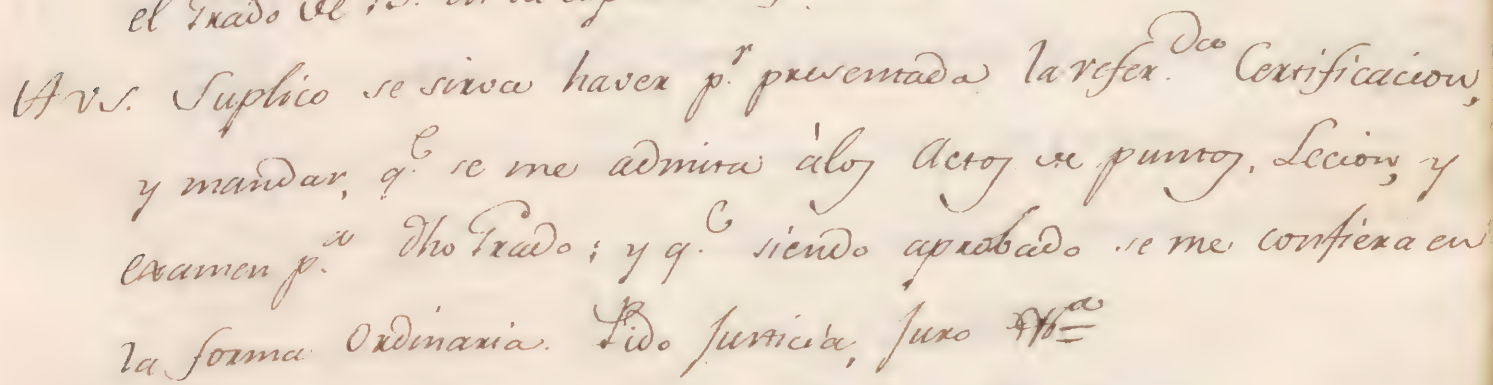 el Grado de B.
A VS. Suplico se sirva haver p.r presentada la refer.da Certificacion,
y mandar, q.e se me admita â los Actos de puntos, Lecion, y
examen p.a dho Grado; y q.e siendo aprobado se me confiera en
la forma Ordinaria. Pido Justicia, Juro